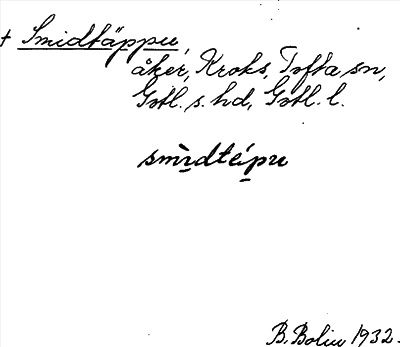 + Smidtäppu,
åker, Kroks, Tofta sn,
Gotl. s. hd, Gotl. l.
smì̱dté̱pu
B. Bolin 1932.